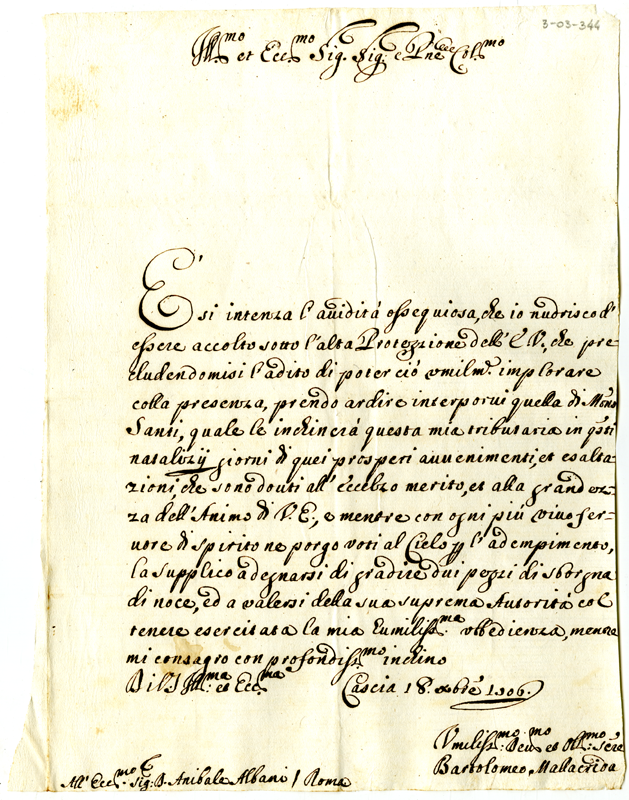 3-03-344
Ill.mo et Ecc.mo Sig. Sig. e Pne Col.mo
E' si intenza l'avidità ossequiosa, che io nudrisco d'
essere accolto sotto l'alta Protezzione dell'E.V., che pre
cludendomisi l'adito di poter ciò vmilm.te implorare
colla presenza, prendo ardire interporui quella di Mons.
Santi, quale le inchinerà questa mia tributaria in q.sti
natalizij giorni di quei prosperi auuenimenti, et esalta-
zioni, che sono douti all'eccelso merito, et alla grandez-
za dell'Animo di V.E., e mentre con ogni più viuo fer-
uore di spirito ne porgo voti al Cielo p l'adempimento,
la supplico a degnarsi di gradire dui pezzi di
di noce, ed a valersi della sua suprema Autorità col
tenere esercitata la mia Eumiliss.ma vbbedienza, mentre
mi consagro con profondiss.mo inchino
Di V.S. Ill.ma et Ecc.ma Cascia 18. Xbre 1706.
Vmiliss.mo Deu.mo et Obl.mo Seru.re
Bartolomeo
All' Ecc.mo Sig. D. Anibale Albani / Roma